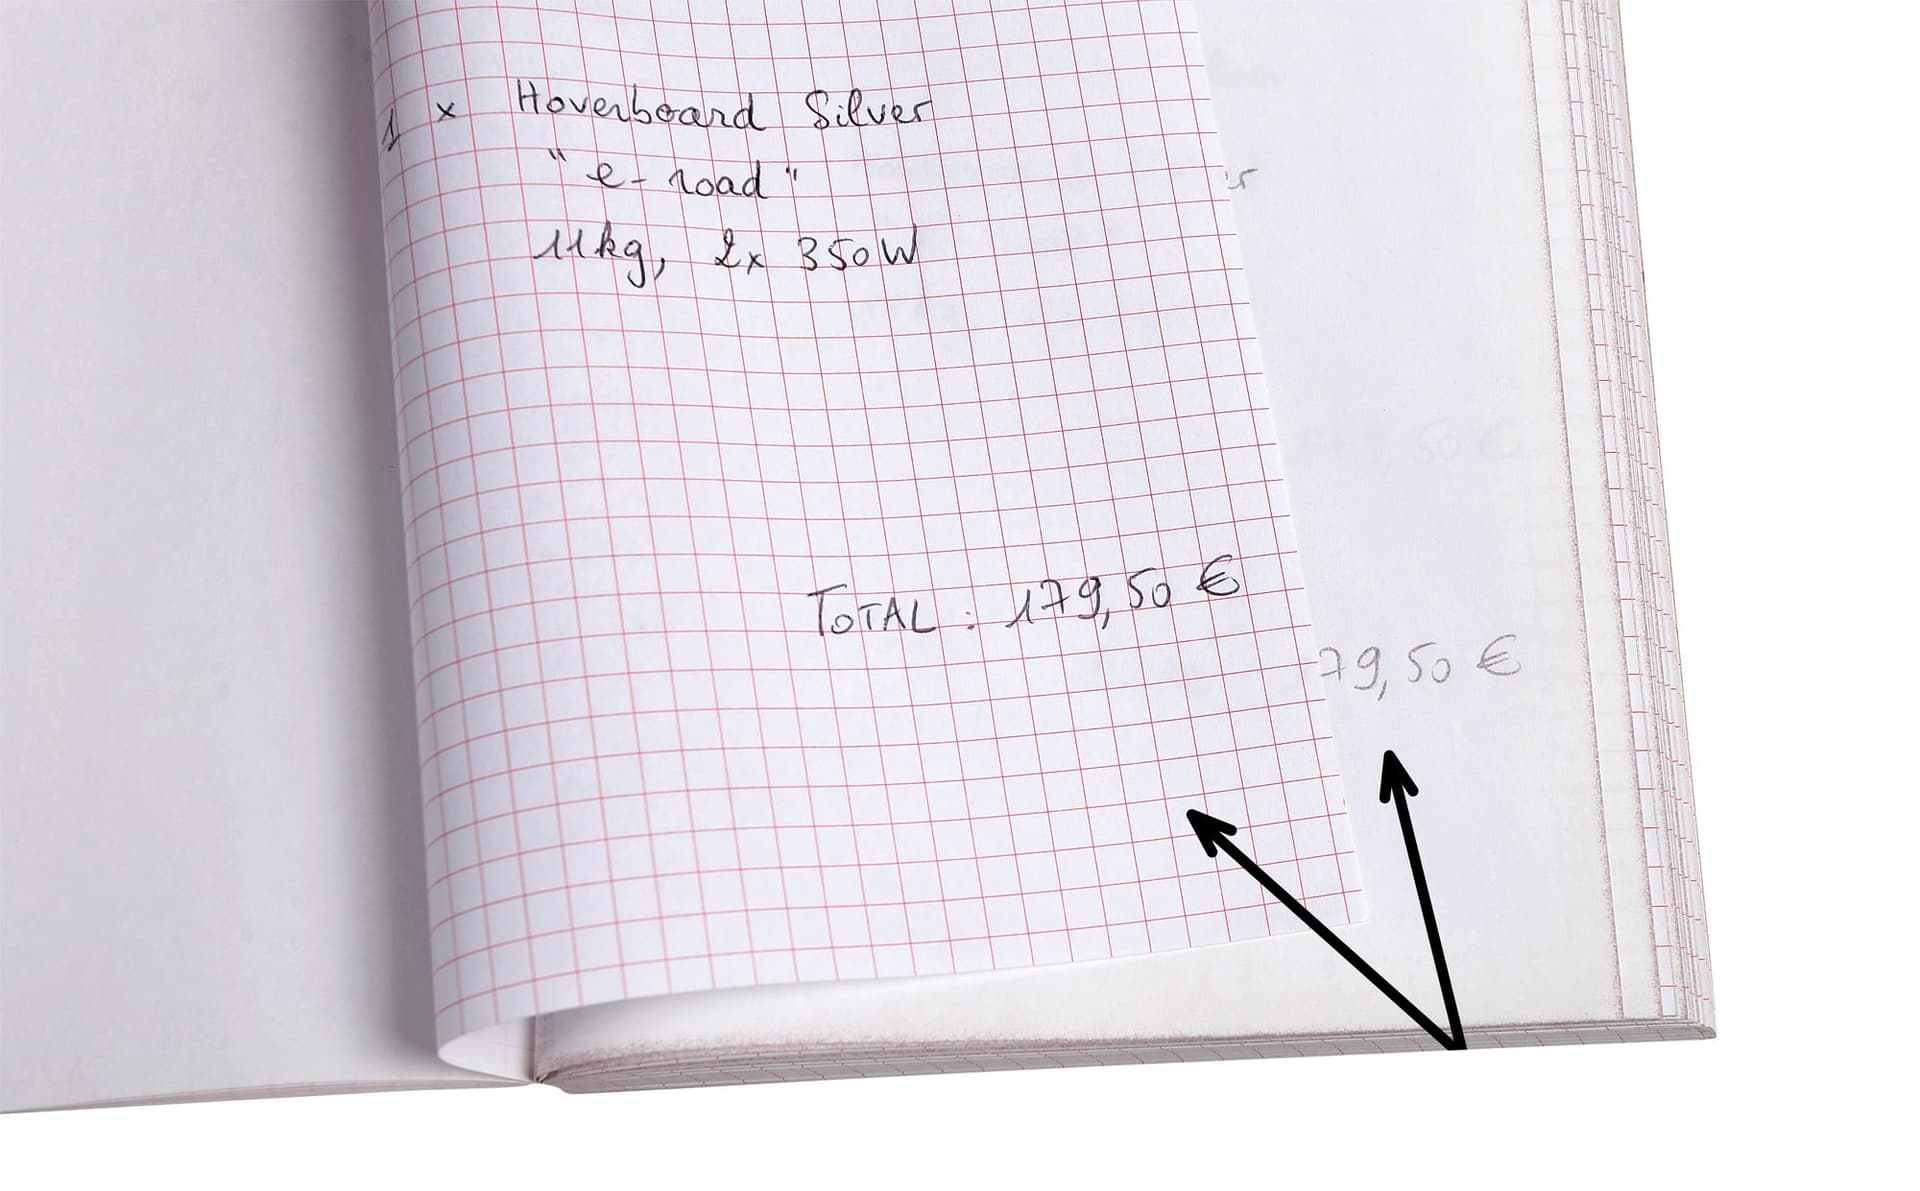 1 x Hoverboard Silver
"e-road"
11kg, 2x 350W
TOTAL : 179,50 €
79,50 €